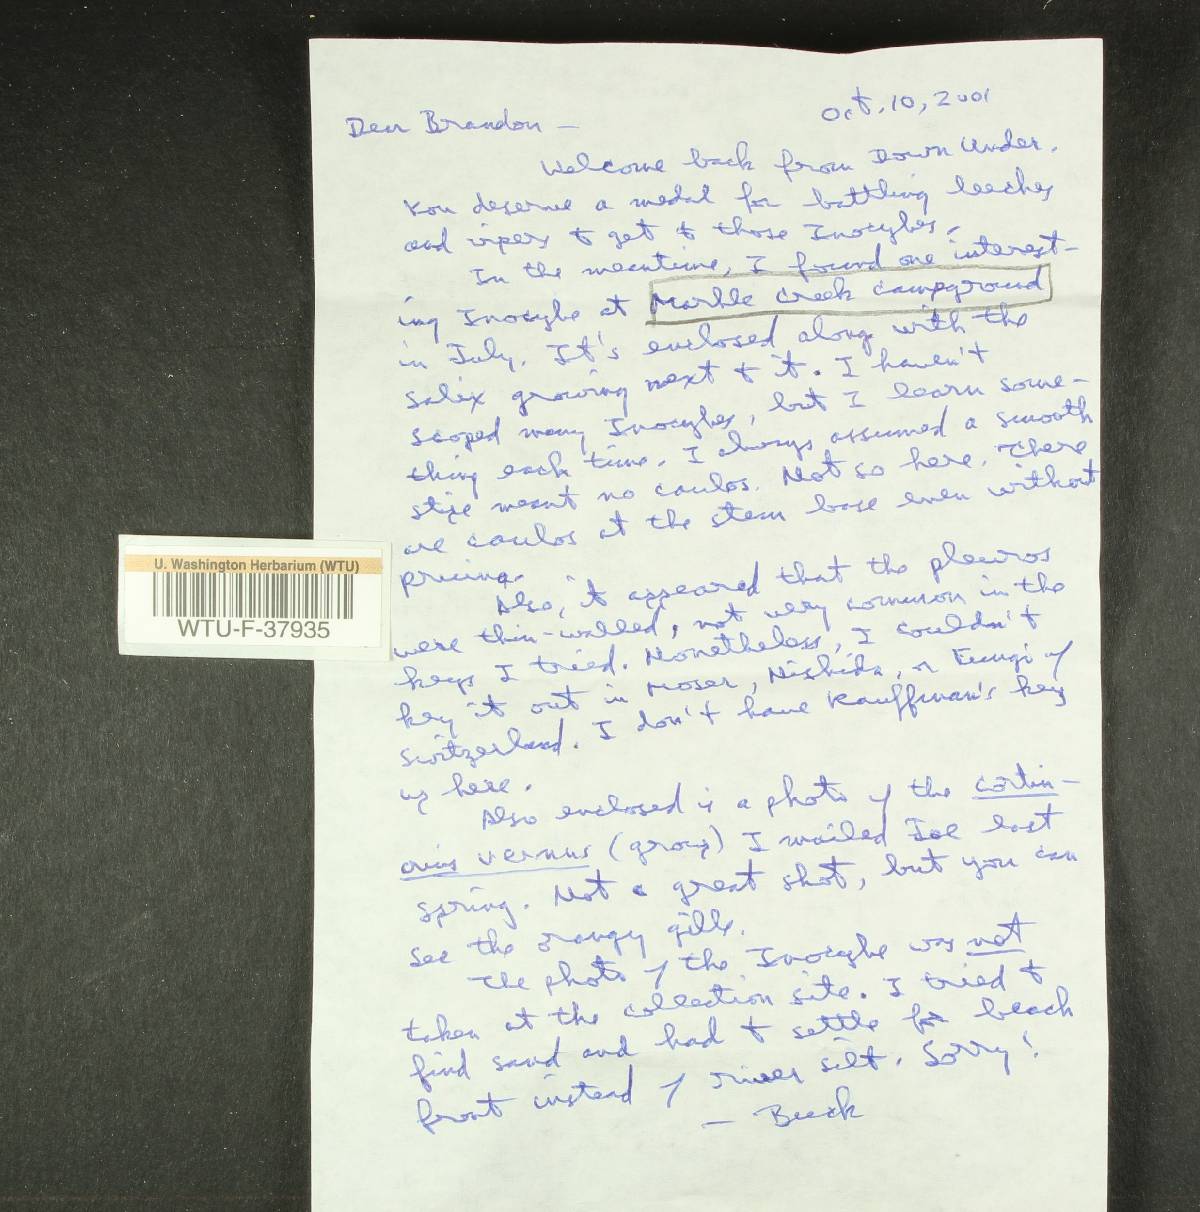 Oct. 10, 2001
Dear Brandon —
Welcome back from Down Under.
You deserve a medal for battling leeches
and vipers to get to those Inocybes.
In the meantime, I found one interest-
ing Inocybe at Marble Creek campground
in July. It's enclosed along with the
salix growing next to it. I haven't
scoped many Inocybes, but I learn some-
thing each time. I always assumed a smooth
stipe meant no caulos. Not so here. There
are caulos at the stem base even without
pruina.
Also, it appeared that the pleuros
were thin-walled, not very common in the
keys I tried. Nonetheless, I couldn't
key it out in Moser, Nishida, or Fungi of
Switzerland. I don't have Kauffman's key
up here.
Also enclosed is a photo of the cortin-
arius vernus (group) I mailed Joe last
spring. Not a great shot, but you can
see the orangy gills.
The photo of the Inocybe was not
taken at the collection site. I tried to
find sand and had to settle for beach
front instead of river silt. Sorry!
— Buck
U. Washington Herbarium (WTU)
WTU-F-37935